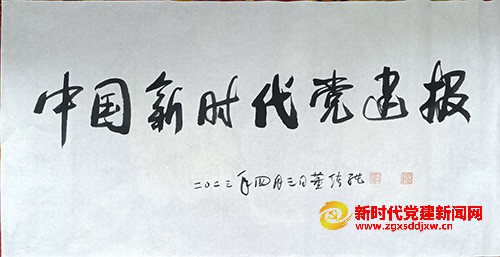 中国新时代党建报
二〇二三年四月三日
新时代党建新闻网
www.zgxsddjxw.cn